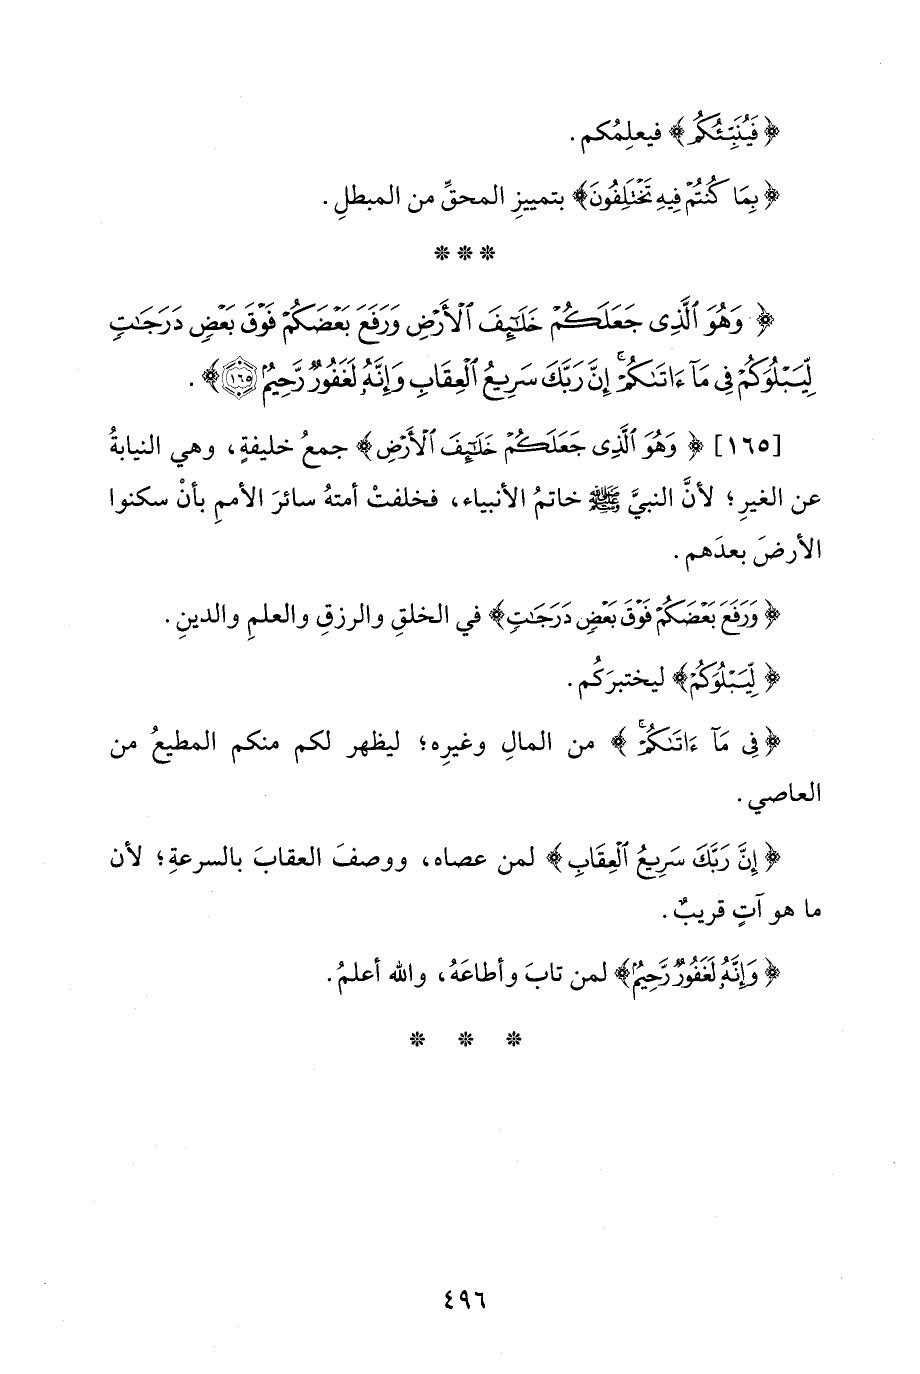 ﴿ فَيُنَبِّئُكُم ﴾ فيعلِمُكم .
﴿ بِمَا كُنتُمْ فِيهِ تَخْتَلِفُونَ ﴾ بتمييزِ المحقِّ من المبطلِ .
* * *
﴿ وَهُوَ ٱلَّذِى جَعَلَكُمْ خَلَٰٓئِفَ ٱلْأَرْضِ وَرَفَعَ بَعْضَكُمْ فَوْقَ بَعْضٍ دَرَجَٰتٍ
لِّيَبْلُوَكُمْ فِى مَآ ءَاتَىٰكُمْ ۗ إِنَّ رَبَّكَ سَرِيعُ ٱلْعِقَابِ وَإِنَّهُۥ لَغَفُورٌ رَّحِيمٌ ١٦٥ ﴾ .
[١٦٥] ﴿ وَهُوَ ٱلَّذِى جَعَلَكُمْ خَلَٰٓئِفَ ٱلْأَرْضِ ﴾ جمعُ خليفةٍ، وهي النيابةُ
عن الغيرِ؛ لأنَّ النبيَّ ﷺ خاتمُ الأنبياء، فخلفتْ أمتهُ سائرَ الأممِ بأنْ سكنوا
الأرضَ بعدَهم .
﴿ وَرَفَعَ بَعْضَكُمْ فَوْقَ بَعْضٍ دَرَجَٰتٍ ﴾ في الخلقِ والرزقِ والعلمِ والدينِ .
﴿ لِّيَبْلُوَكُمْ ﴾ ليختبرَكُم .
﴿ فِى مَآ ءَاتَىٰكُمْ ۗ ﴾ من المالِ وغيرِه؛ ليظهر لكم منكم المطيعُ من
العاصي .
﴿ إِنَّ رَبَّكَ سَرِيعُ ٱلْعِقَابِ ﴾ لمن عصاه، ووصفَ العقابَ بالسرعةِ؛ لأن
ما هو آتٍ قريبٌ .
﴿ وَإِنَّهُۥ لَغَفُورٌ رَّحِيمٌ ﴾ لمن تابَ وأطاعَهُ، والله أعلمُ .
* * *
٤٩٦